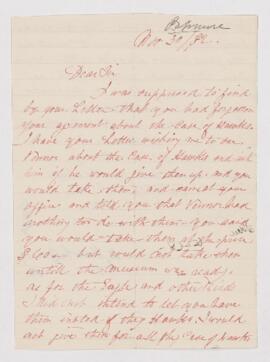 Nov 30/82
Dear Sir
I was supprised to find
by your Letter that you had forgotten
your agrement about the Case of Hawks
I have your Letter wishing me to
Vernor about the Case of Hawks and ask
him if he would give them up and you
would take them and cancel your
offer and told you that Vernor had
nothing to do with them you said
you would take them at the price
but could not take them
untill the Museum was ready
as for the Eagle and other Birds
I did not intend to let you have
them insted of they Hawks. I would
not give them for all the Case of Hawks